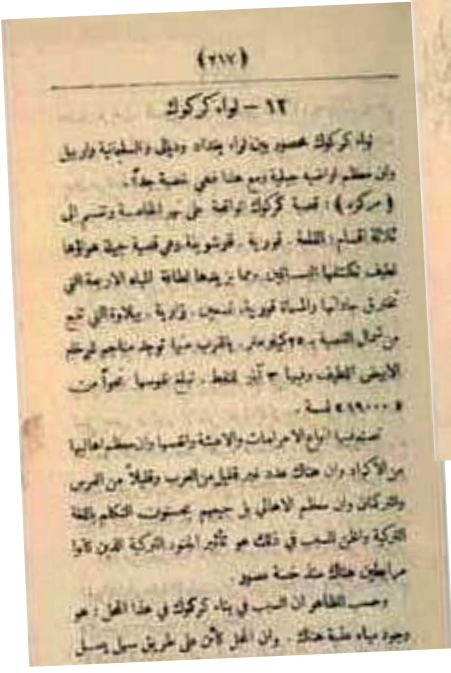 (٢١٧)
١٢ – لواء كركوك
لواء كركوك محصور بين لواء بغداد وديالى والسليمانية واربيل
وان معظم اراضيه جبلية ومع هذا فهي خصبة جداً .
( مركزه ) : قصبة كركوك الواقعة على نهر الخاصة وتقسم الى
ثلاثة اقسام : القلعة . قورية . وهي قصبة جميلة هواؤها
لطيف تكتنفها البساتين . ومما يزيدها لطافة المياه الاربعة التي
تخترق جاداتها والمسماة قورية . تسعين . . بيلاوة التي تنبع
من شمال القصبة بـ ٢٥ كيلومتر . بالقرب منها توجد مناجم للرخام
الابيض اللطيف وفيها ٣ آبار للنفط . تبلغ نفوسها نحواً من
« ١٩٠٠٠ » نسمة .
تصنع فيها انواع الاحرامات والاعبئة وان معظم اهاليها
من الاكراد وان هناك عدد غير قليل من العرب وقليلاً من الفرس
والتركمان وان معظم الاهالي بل جميعهم يحسنون التكلم باللغة
التركية واظن السبب في ذلك هو تأثير الجنود التركية الذين كانوا
مرابطين هناك منذ خمسة عصور .
وحسب الظاهر ان السبب في بناء كركوك في هذا المحل : هو
وجود مياه عذبة هناك . وان المحل كائن على طريق سيل